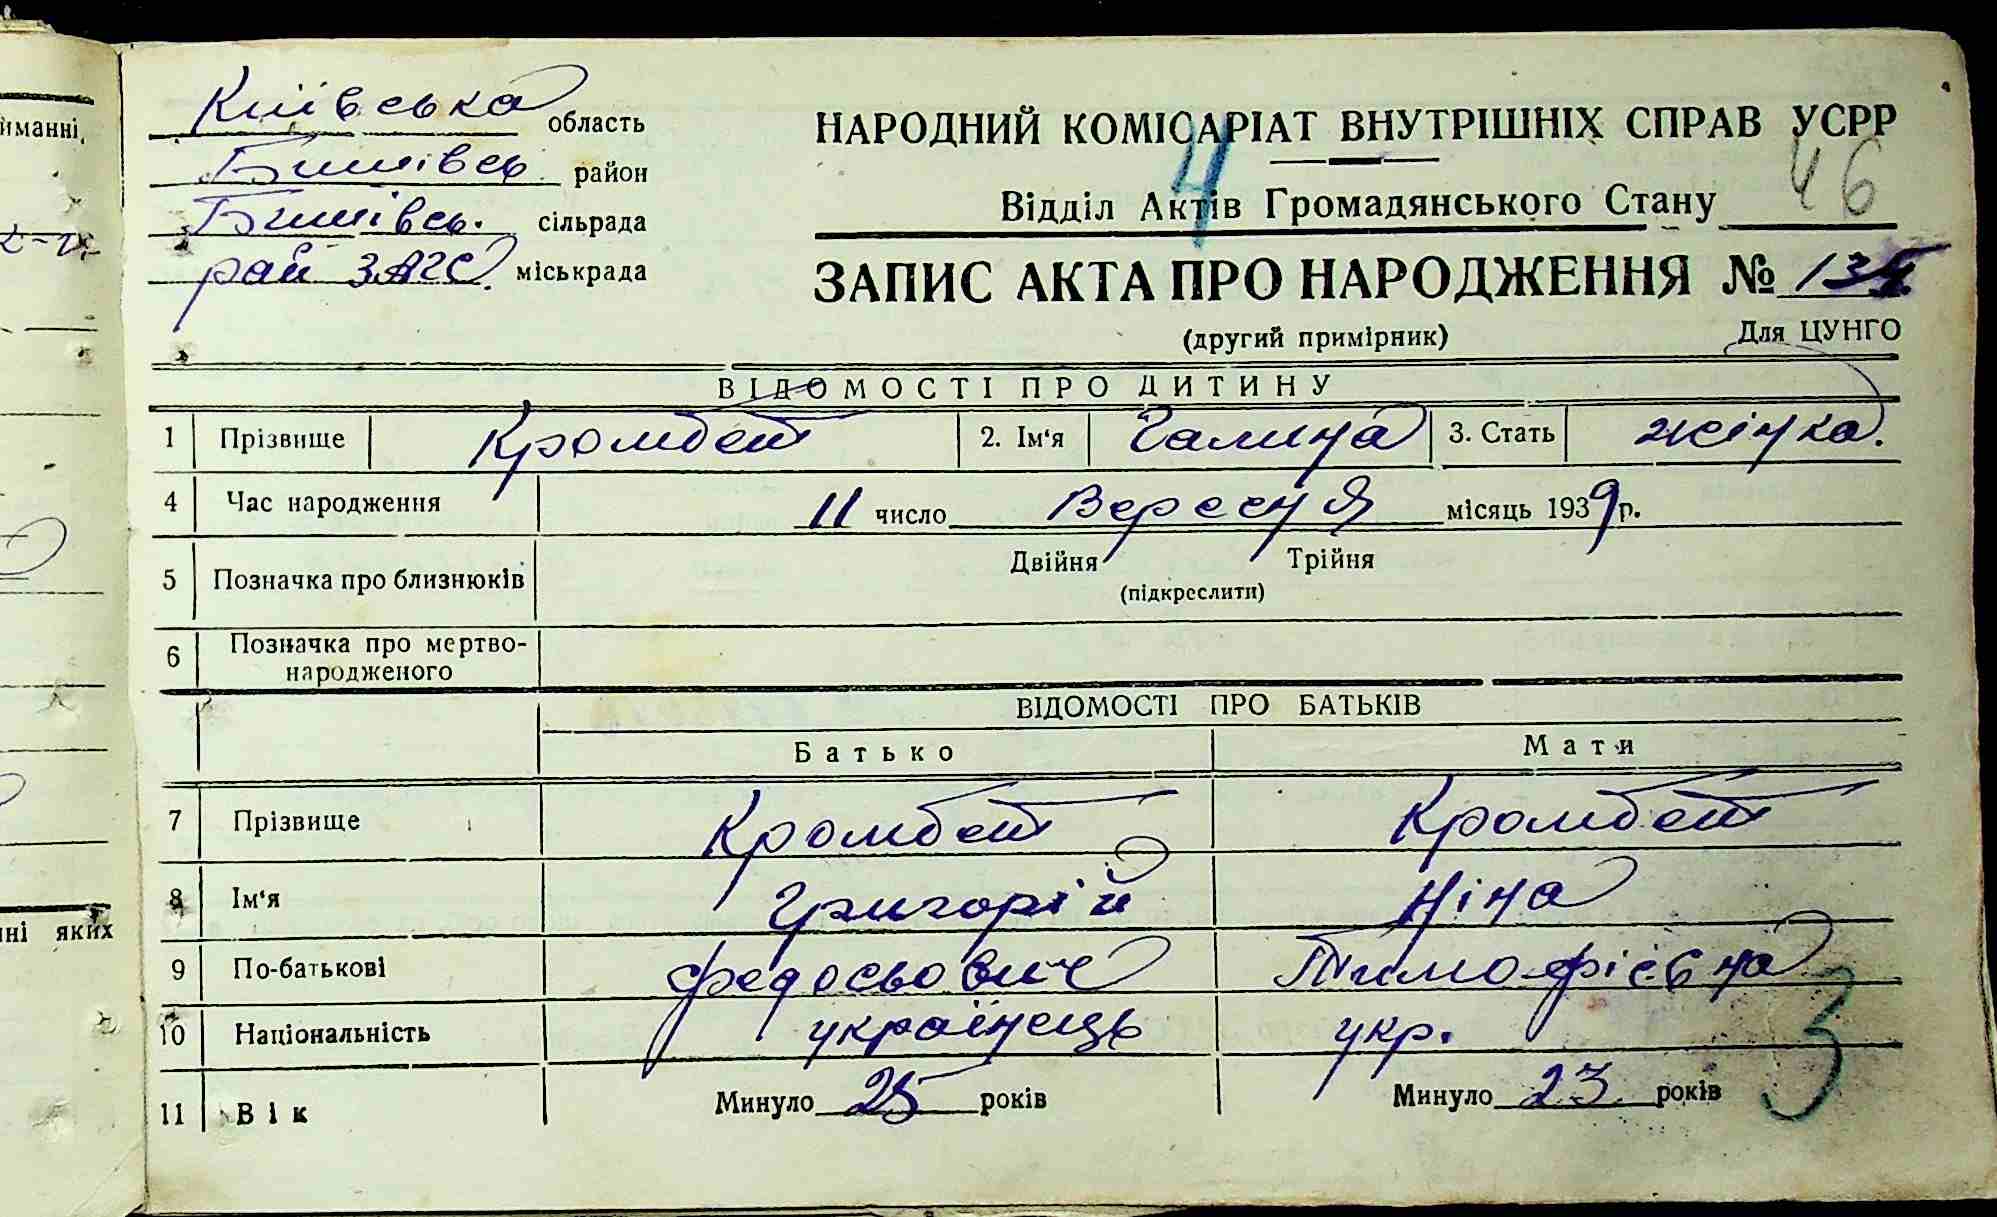 Київська область
Бишівсь. район
Бишівсь. сільрада
рай ЗАГС. міськрада
НАРОДНИЙ КОМІСАРІАТ ВНУТРІШНІХ СПРАВ УСРР
4
46
Відділ Актів Громадянського Стану
ЗАПИС АКТА ПРО НАРОДЖЕННЯ №
(другий примірник) Для ЦУНГО
ВІДОМОСТІ ПРО ДИТИНУ
1 Прізвище Кромбет 2. Ім'я Галина 3. Стать жінка.
4 Час народження 11 число Вересня місяць 1939 р.
5 Позначка про близнюків Двійня Трійня
(підкреслити)
6 Позначка про мертво-
народженого
ВІДОМОСТІ ПРО БАТЬКІВ
Батько Мати
7 Прізвище Кромбет Кромбет
8 Ім'я Григорій Ніна
9 По-батькові Федосьович Тимофієвна
10 Національність українець укр.
11 Вік Минуло 25 років Минуло 23 років
3
йманні,
нні яких